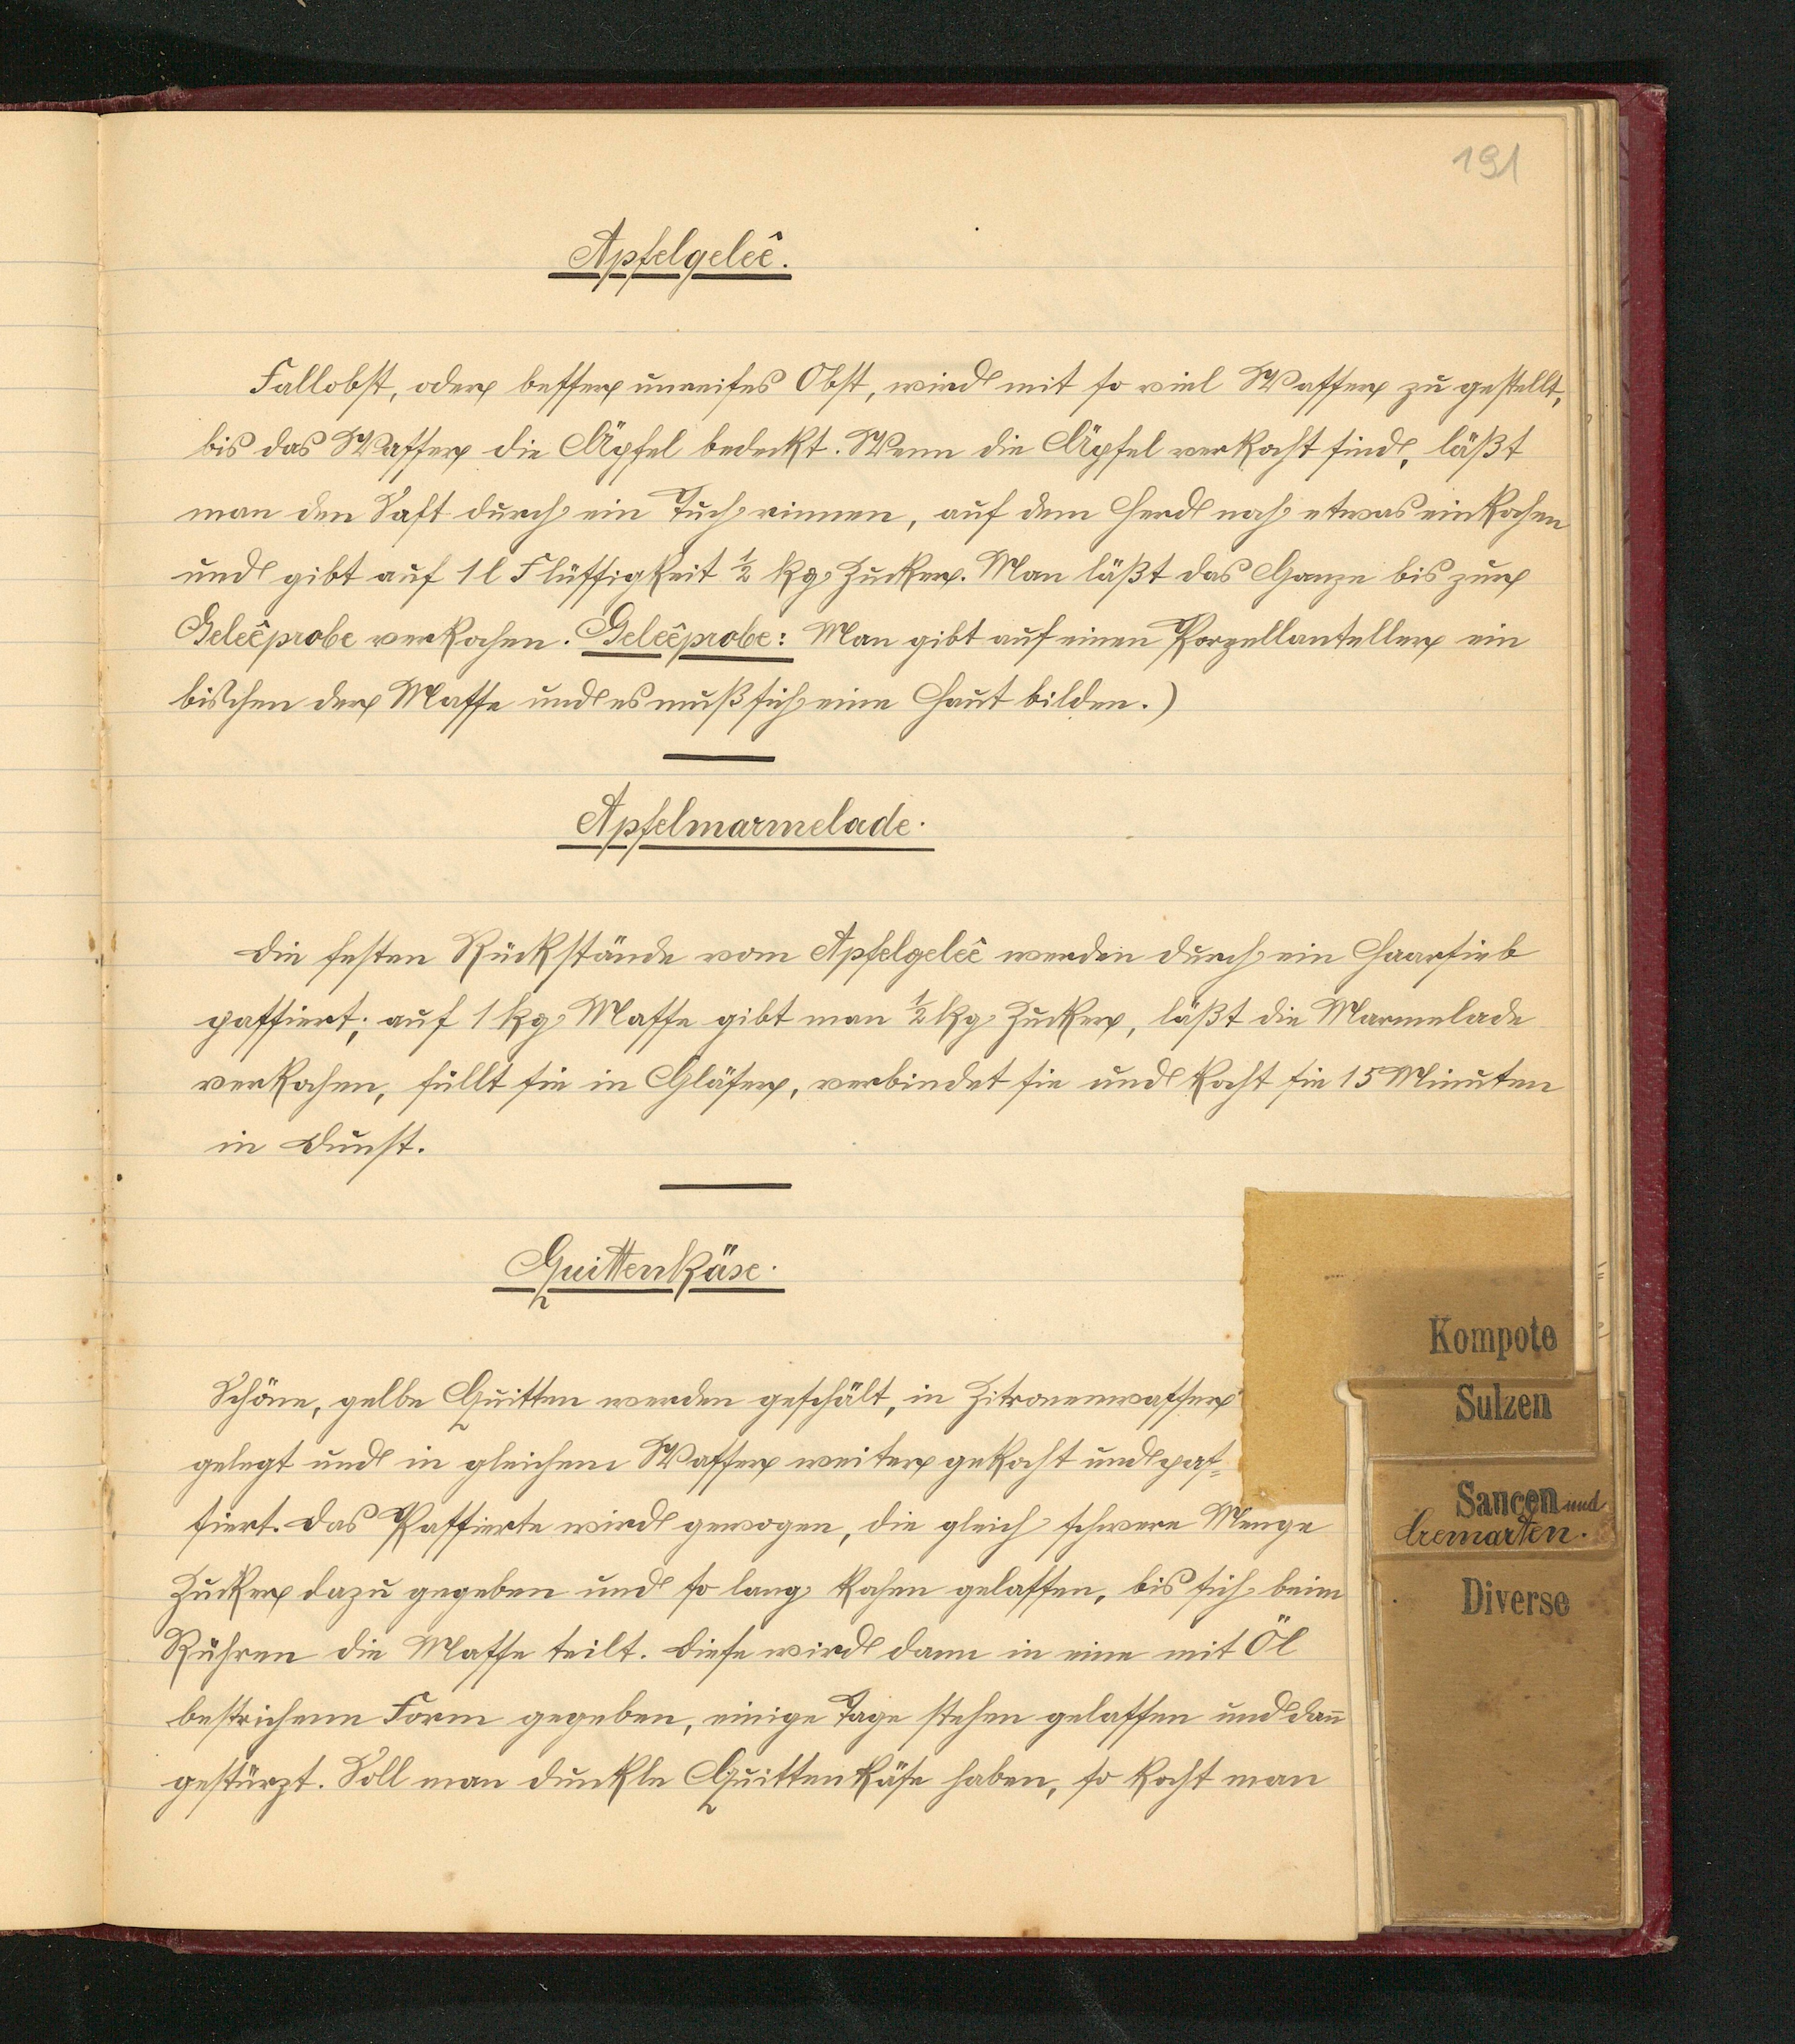 191
Apfelgeleê.
Fallobst, oder besser unreifes Obst, wird mit so viel Wasser zu gestellt,
bis das Wasser die Äpfel bedeckt. Wenn die Äpfel verkocht sind, läßt
man den Saft durch ein Tuch rinnen, auf dem Herd noch etwas einkochen
und gibt auf 1 l Flüssigkeit ½ kg Zucker. Man läßt das Ganze bis zur
Geleêprobe verkochen. Geleêprobe: Man gibt auf einen Porzellanteller ein
bischen der Masse und es muß sich eine Haut bilden.)
Apfelmarmelade.
Die festen Rückstände vom Apfelgeleê werden durch ein Haarsieb
passiert; auf 1 kg Masse gibt man ½ kg Zucker, läßt die Marmelade
verkochen, füllt sie in Gläser, verbindet sie und kocht sie 15 Minuten
in Dunst.
Quittenkäse.
Schöne, gelbe Quitten werden geschält, in Zitronenwasser
gelegt und in gleichem Wasser weiter gekocht und pas-
siert. Das Passierte wird gewogen, die gleich schwere Menge
Zucker dazu gegeben und so lang kochen gelassen, bis sich beim
Rühren die Masse teilt. Diese wird dann in eine mit Öl
bestrichene Form gegeben, einige Tage stehen gelassen und dan̄
gestürzt. Soll man dunkle Quittenkäse haben, so kocht man
Kompote
Sulzen
Saucen und
Cremarten.
Diverse